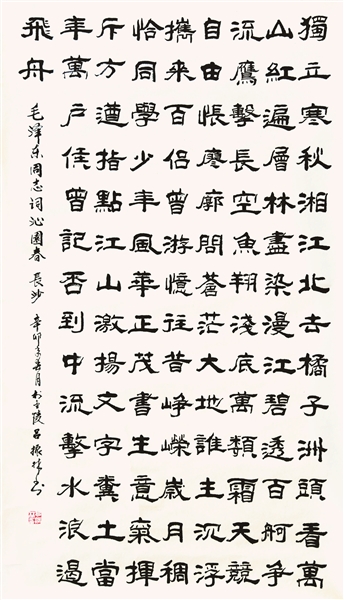 獨立寒秋湘江北去橘子洲頭看萬
山紅遍層林盡染漫江碧透百舸争
流鷹擊長空魚翔淺底萬類霜天競
自由悵廖廓問蒼茫大地誰主沉浮
攜來百侣曾游憶往昔崢嶸歲月稠
恰同學少年風華正茂書生意氣揮
斥方遒指點江山激揚文字糞土當
年萬户侯曾記否到中流擊水浪遏
飛舟
毛澤东同志词沁園春 長沙 辛卯年月於陵吕振书